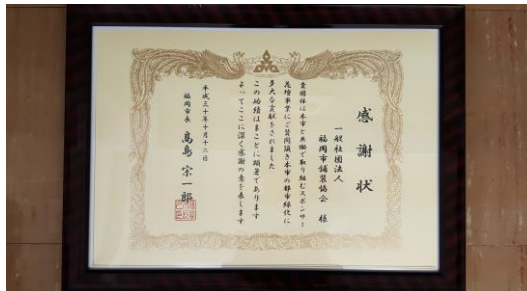 感謝状
一般社団法人
福岡市舗装協会 様
貴団体は本市と共働で取り組むスポンサー
花壇事業にご賛同頂き本市の都市緑化に
多大な貢献をされました
この功績はまことに顕著であります
よってここに深く感謝の意を表します
平成三十年十月十二日
福岡市長 髙島 宗一郎